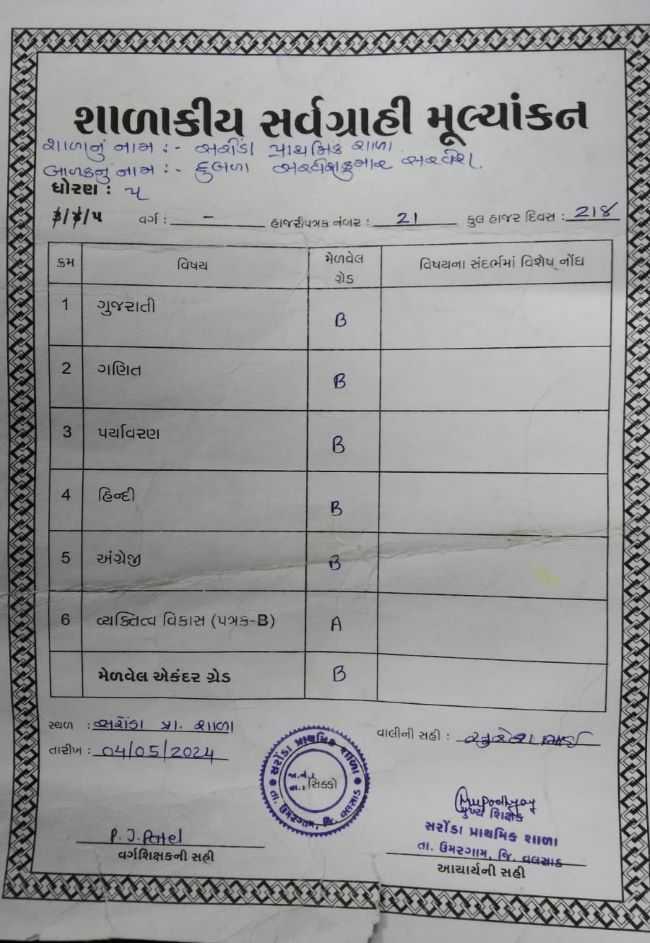 શાળાકીય સર્વગ્રાહી મૂલ્યાંકન
શાળાનું નામ :- સરોંડા પ્રાથમિક શાળા
બાળકનું નામ :- દુબળા
ધોરણ : ૫
૩/૪/૫ વર્ગ : - હાજરીપત્રક નંબર : 21 કુલ હાજર દિવસ : 218
ક્રમ વિષય મેળવેલ ગ્રેડ વિષયના સંદર્ભમાં વિશેષ નોંધ
1 ગુજરાતી B
2 ગણિત B
3 પર્યાવરણ B
4 હિન્દી B
5 અંગ્રેજી B
6 વ્યક્તિત્વ વિકાસ (પત્રક-B) A
મેળવેલ એકંદર ગ્રેડ B
સ્થળ : સરોંડા પ્રા. શાળા
વાલીની સહી :
તારીખ : 04/05/2024
સરોંડા પ્રાથમિક શાળા
સિક્કો
તા. ઉમરગામ, જિ. વલસાડ
P. J. Patel
વર્ગશિક્ષકની સહી
મુખ્ય શિક્ષક
સરોંડા પ્રાથમિક શાળા
તા. ઉમરગામ, જિ. વલસાડ
આચાર્યની સહી